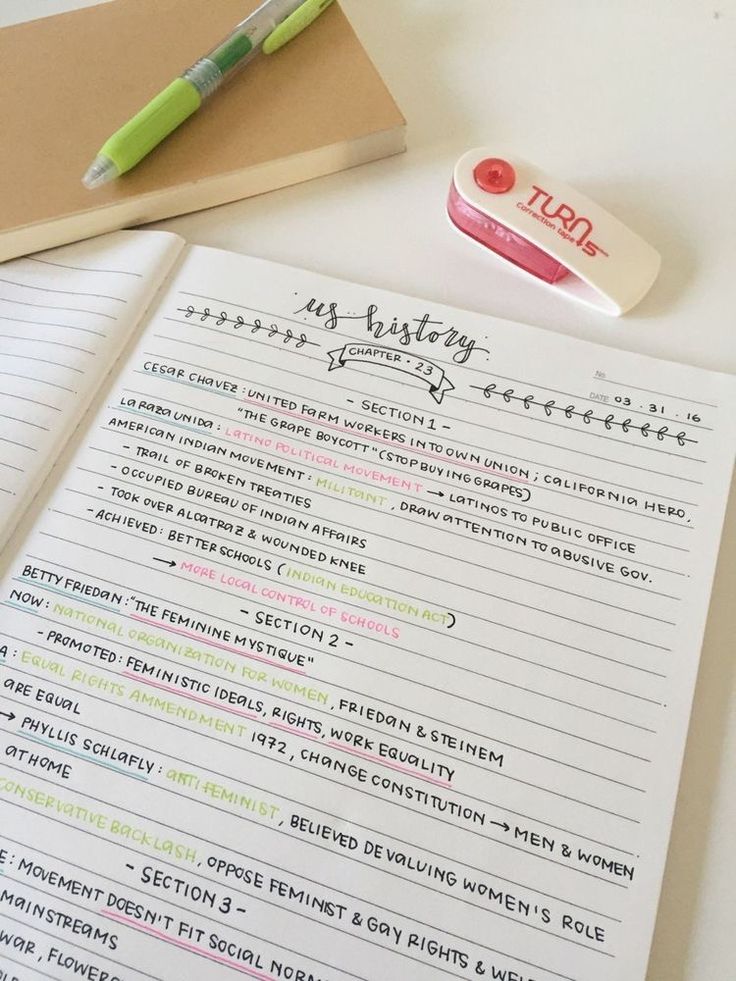 TURN
correction tape +5
us history
CHAPTER • 23
No
DATE 03 . 31 . 16
- SECTION 1 -
CESAR CHAVEZ : UNITED FARM WORKERS INTO OWN UNION ; CALIFORNIA HERO,
"THE GRAPE BOYCOTT" (STOP BUYING GRAPES)
LA RAZA UNIDA : LATINO POLITICAL MOVEMENT → LATINOS TO PUBLIC OFFICE
AMERICAN INDIAN MOVEMENT : MILITANT , DRAW ATTENTION TO ABUSIVE GOV.
- TRAIL OF BROKEN TREATIES
- OCCUPIED BUREAU OF INDIAN AFFAIRS
- TOOK OVER ALCATRAZ & WOUNDED KNEE
- ACHIEVED : BETTER SCHOOLS ( INDIAN EDUCATION ACT )
→ MORE LOCAL CONTROL OF SCHOOLS
- SECTION 2 -
BETTY FRIEDAN : "THE FEMININE MYSTIQUE"
NOW : NATIONAL ORGANIZATION FOR WOMEN , FRIEDAN & STEINEM
- PROMOTED : FEMINISTIC IDEALS, RIGHTS, WORK EQUALITY
A : EQUAL RIGHTS AMMENDMENT 1972 , CHANGE CONSTITUTION → MEN & WOMEN
ARE EQUAL
→ PHYLLIS SCHLAFLY : ANTI FEMINIST , BELIEVED DEVALUING WOMEN'S ROLE
AT HOME
CONSERVATIVE BACKLASH , OPPOSE FEMINIST & GAY RIGHTS & WEL
- SECTION 3 -
E : MOVEMENT DOESN'T FIT SOCIAL NORM
MAINSTREAMS
WAR , FLOWER